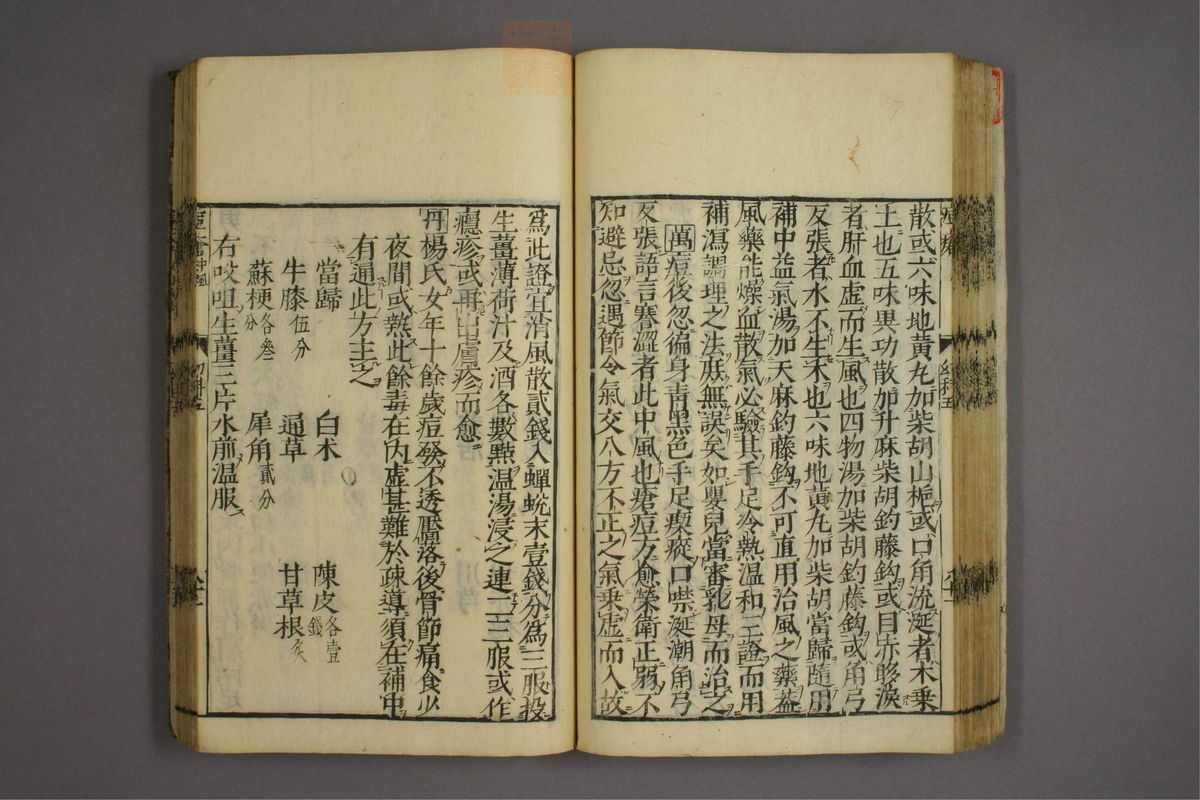 散或六味地黃丸加柴胡山梔或口角流涎者木乗
土也五味異功散加升麻柴胡釣藤鈎或目赤眵淚
者肝血虛而生風也四物湯加柴胡釣藤鈎或角弓
反張者水不生木也六味地黃丸加柴胡當歸隨用
補中益氣湯加天麻釣藤鈎不可直用治風之藥盖
風藥能燥血散氣必驗其手足冷熱温和二證而用
補瀉調理之法庶無誤矣如嬰兒當審乳母而治之
萬痘後忽徧身青黑色手足瘈瘲口噤涎潮角弓
反張語言蹇澀者此中風也瘡痘方愈榮衛正弱不
知避忌忽遇節令氣交八方不正之氣乗虛而入故
爲此證宜消風散貳錢入蟬蛻末壹錢分爲三服投
生薑薄荷汁及酒各數㸃温湯浸之連二三服或作
癮疹或再出膚疹而愈
丹楊氏女年十餘歲痘發不透靨落後骨節痛食少
夜間或熱此餘毒在内虛甚難於疎導須在補中
有通此方主之
當歸 白术 陳皮各壹錢
牛膝伍分 通草 甘草根炙
蘇梗各叁分 犀角貳分
右㕮咀生薑三片水煎温服